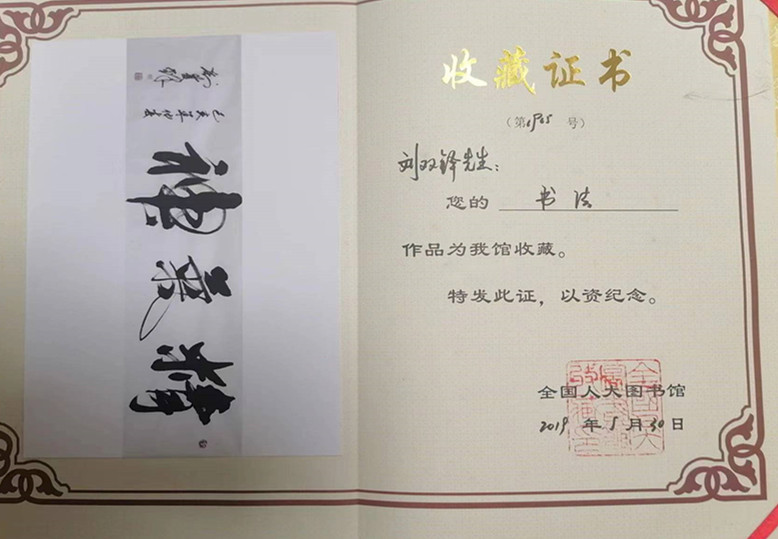 精氣神
己亥年仲夏
收藏证书
(第 号)
刘双铎先生:
您的 书法
作品为我馆收藏。
特发此证,以资纪念。
全国人大图书馆
2019 年 5 月 30 日